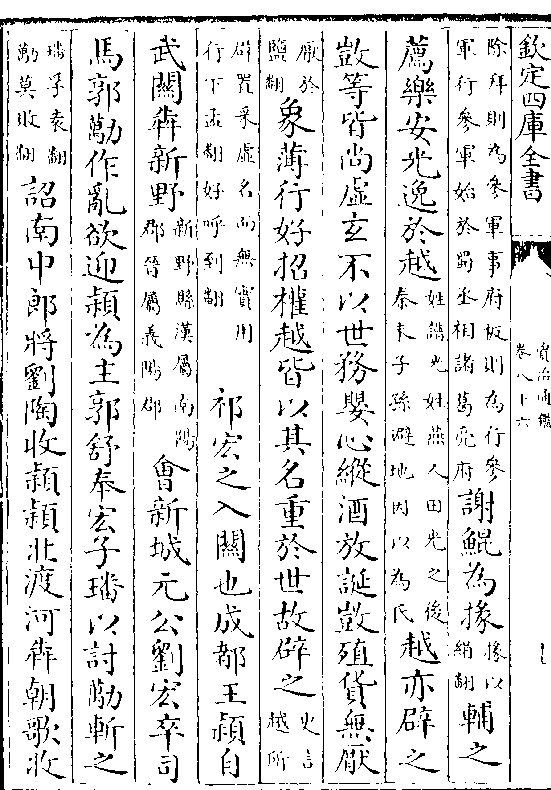 欽定四庫全書
資治通鑑
卷八十六
除拜則為參軍事府板則為行參
軍行參軍始於蜀丞相諸葛亮府
謝鯤為掾
掾以
絹翻
輔之
薦樂安光逸於越
姓譜光姓燕人田光之後
秦末子孫避地因以為氏
越亦辟之
敳等皆尚虛玄不以世務嬰心縱酒放誕敳殖貨無厭
厭於
鹽翻
象薄行好招權越皆以其名重於世故辟之
史言
越所
辟置采虛名而無實用
行下孟翻好呼到翻
祁宏之入關也成都王穎自
武關犇新野
新野縣漢屬南陽
郡晉屬義陽郡
會新城元公劉宏卒司
馬郭勱作亂欲迎穎為主郭舒奉宏子璠以討勱斬之
璠孚袁翻
勱莫敗翻
詔南中郎將劉陶收穎穎北渡河犇朝歌收